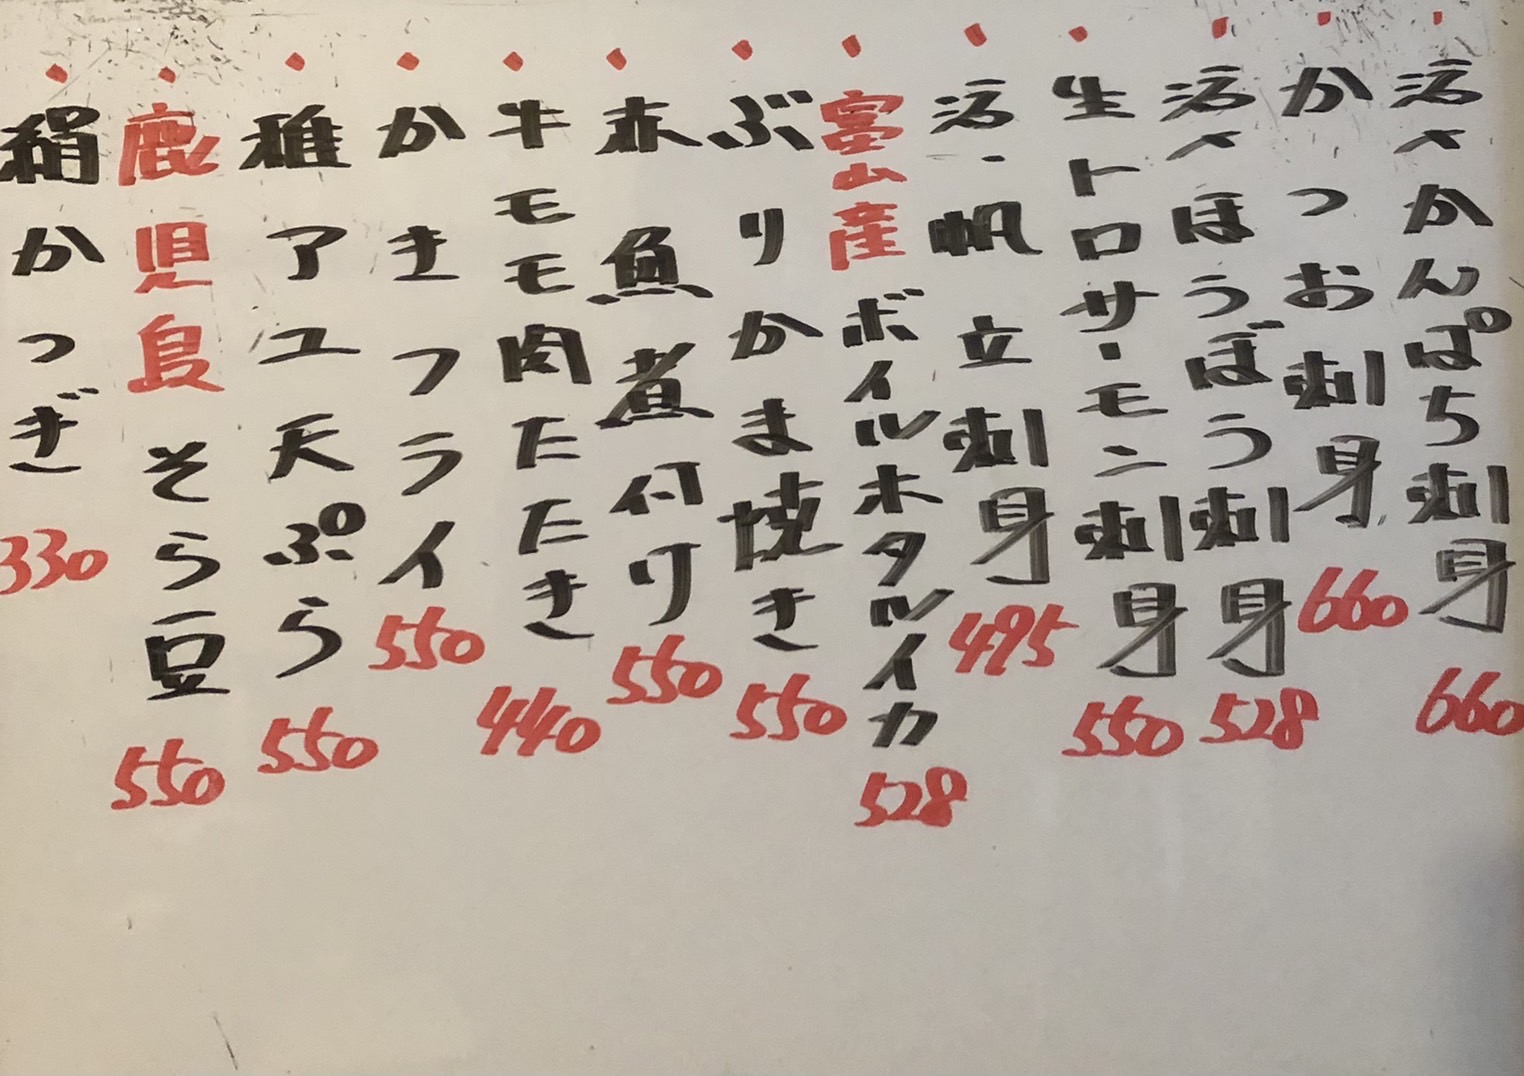 活〆かんぱち刺身 660
かつお刺身 660
活〆ほうぼう刺身 528
生トロサーモン刺身 550
活・帆立刺身 495
富山産ボイルホタルイカ 528
ぶりかま焼き 550
赤魚煮付け 550
牛モモ肉たたき 440
かきフライ 550
稚アユ天ぷら 550
鹿児島そら豆 550
絹かつぎ 330